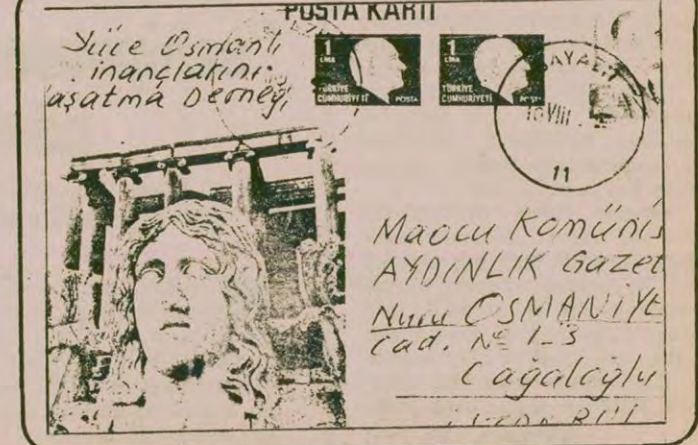 POSTA KARTI
Yüce Osmanlı
inançlarını
aşatma Derneği
1
LİRA
TÜRKİYE
CUMHURİYETİ POSTA
1
LİRA
TÜRKİYE
CUMHURİYETİ POSTA
AYAZIT
VIII
11
Maocu Komünis
AYDINLIK Gazet
Nuru OSMANİYE
Cad. No 1-3
Cağaloğlu